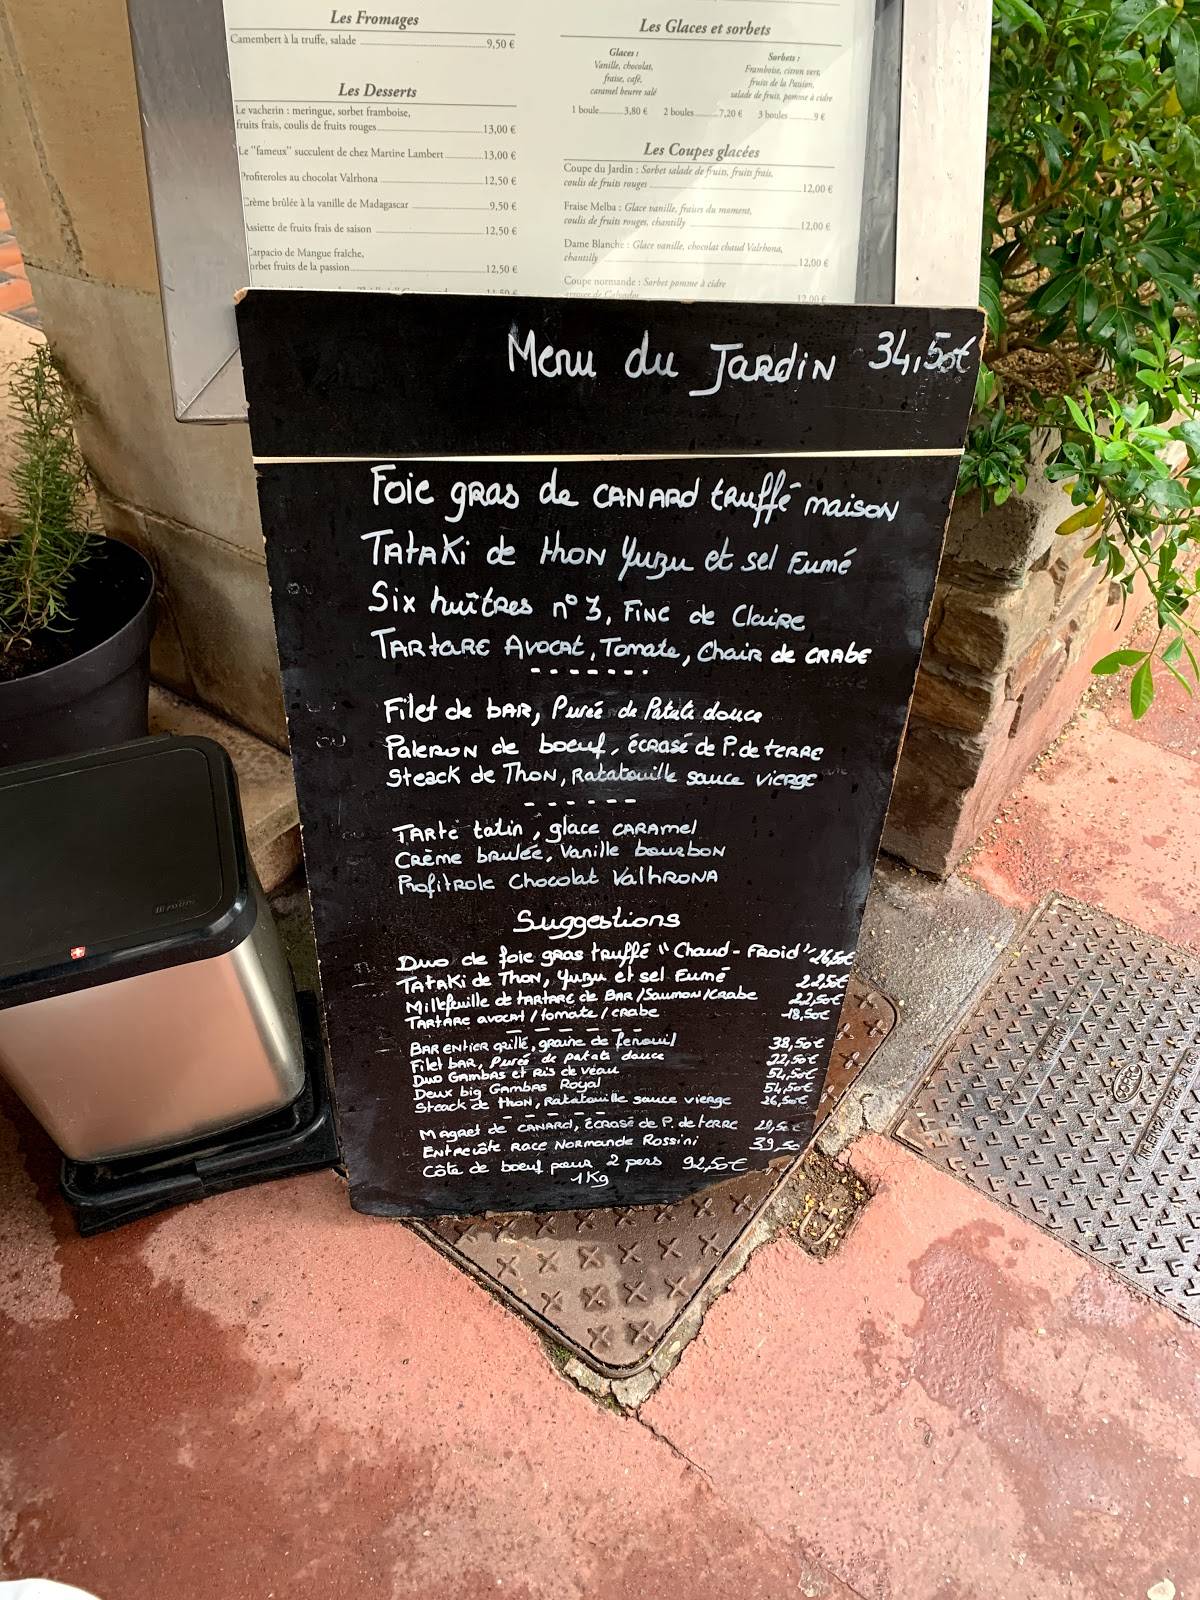 Les Fromages
Camembert à la truffe, salade 9,50 €
Les Desserts
Le vacherin : meringue, sorbet framboise,
fruits frais, coulis de fruits rouges 13,00 €
Le "fameux" succulent de chez Martine Lambert 13,00 €
Profiteroles au chocolat Valrhona 12,50 €
Crème brûlée à la vanille de Madagascar 9,50 €
Assiette de fruits frais de saison 12,50 €
Carpacio de Mangue fraîche,
sorbet fruits de la passion 12,50 €
11,50 €
Les Glaces et sorbets
Glaces :
Vanille, chocolat,
fraise, café,
caramel beurre salé
Sorbets :
Framboise, citron vert,
fruits de la Passion,
salade de fruit, pomme à cidre
1 boule 3,80 € 2 boules 7,20 € 3 boules 9 €
Les Coupes glacées
Coupe du Jardin : Sorbet salade de fruits, fruits frais,
coulis de fruits rouges 12,00 €
Fraise Melba : Glace vanille, fraises du moment,
coulis de fruits rouges, chantilly 12,00 €
Dame Blanche : Glace vanille, chocolat chaud Valrhona,
chantilly 12,00 €
Coupe normande : Sorbet pomme à cidre
12,00 €
Menu du Jardin 34,50€
Foie gras de canard truffé maison
Tataki de thon Yuzu et sel Fumé
Six huîtres n°3, Fine de Claire
Tartare Avocat, Tomate, Chair de crabe
Filet de bar, Purée de Patate douce
Paleron de boeuf, écrasé de P. de terre
Steack de Thon, Ratatouille sauce vierge
Tarte tatin, glace caramel
Crème brulée, Vanille bourbon
Profitrole Chocolat Valhrona
Suggestions
Duo de foie gras truffé "Chaud-Froid" 26,50€
Tataki de Thon, Yuzu et sel Fumé 22,50€
Millefeuille de tartare de Bar/Saumon/Crabe 22,50€
Tartare avocat/tomate/crabe 18,50€
Bar entier grillé, graine de fenouil 38,50€
Filet bar, Purée de patate douce 22,50€
Duo Gambas et Ris de veau 54,50€
Deux big Gambas Royal 54,50€
Steack de thon, Ratatouille sauce vierge 26,50€
Magret de canard, écrasé de P. de terre
Entrecôte race Normande Rossini 39,50
Côte de boeuf pour 2 pers 92,50€
1Kg